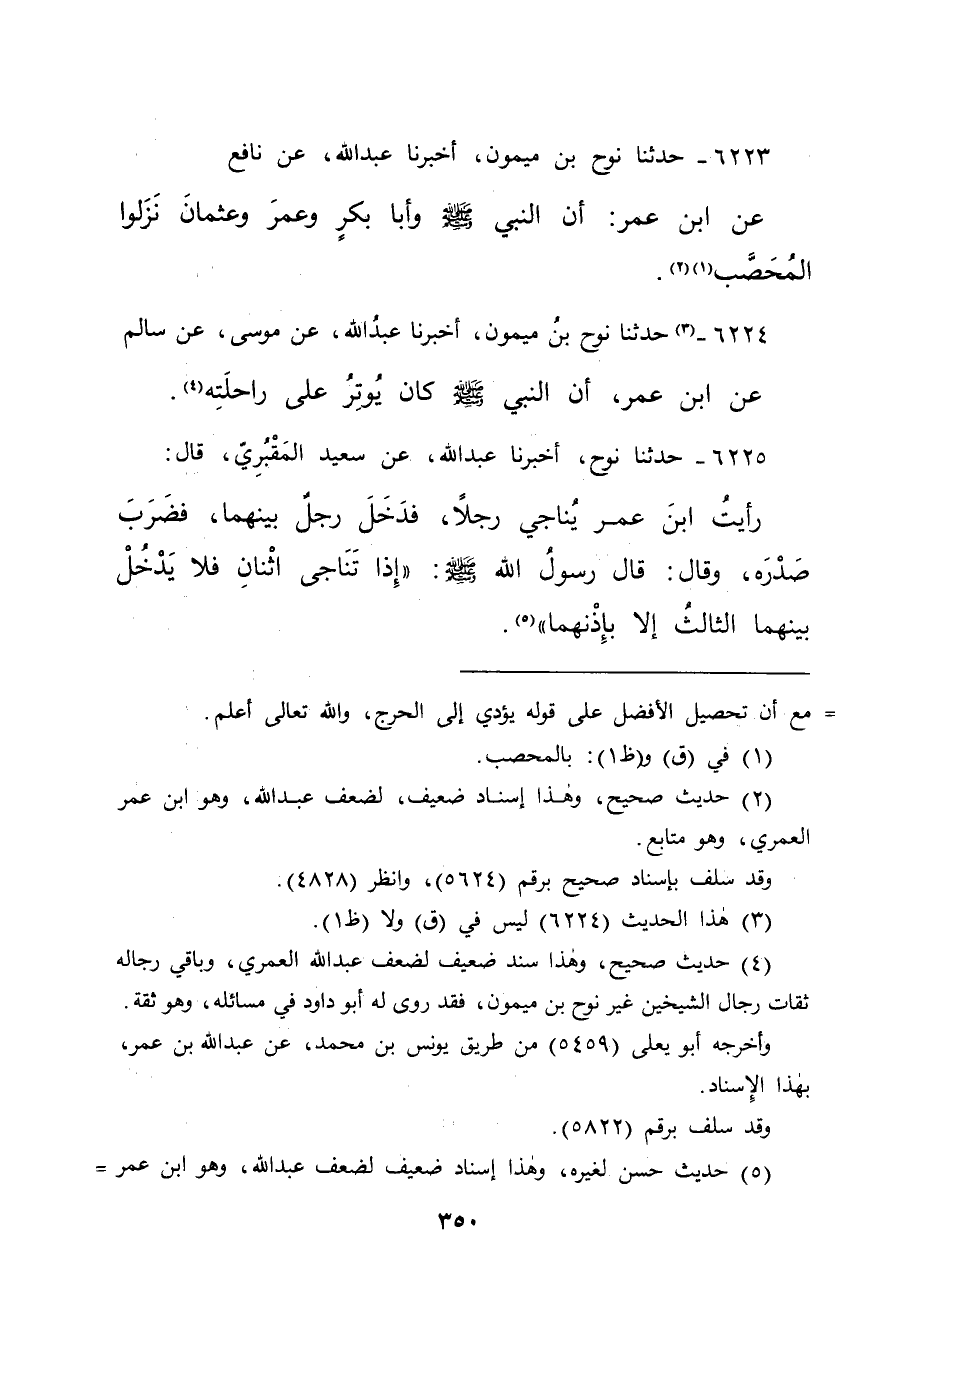 ٦٢٢٣ـ حدثنا نوح بن ميمون، أخبرنا عبدالله، عن نافع
عن ابن عمر: أن النبي ﷺ وأبا بكرٍ وعمرَ وعثمانَ نَزَلوا
المُحَصَّب(١)(٢).
٦٢٢٤ـ(٣) حدثنا نوح بنُ ميمون، أخبرنا عبدُالله، عن موسى، عن سالم
عن ابن عمر، أن النبي ﷺ كان يُوتِرُ على راحلَتِه(٤).
٦٢٢٥ـ حدثنا نوح، أخبرنا عبدالله، عن سعيد المَقْبُرِيّ، قال:
رأيتُ ابنَ عمر يُناجي رجلًا، فدَخَلَ رجلٌ بينهما، فضَرَبَ
صَدْرَه، وقال: قال رسولُ الله ﷺ: «إِذا تَنَاجى اثْنانِ فلا يَدْخُلْ
بينهما الثالثُ إلا بإِذْنهما»(٥).
= مع أن تحصيل الأفضل على قوله يؤدي إلى الحرج، والله تعالى أعلم.
(١) في (ق) و(ظ١): بالمحصب.
(٢) حديث صحيح، وهٰذا إسناد ضعيف، لضعف عبدالله، وهو ابن عمر
العمري، وهو متابع.
وقد سلف بإسناد صحيح برقم (٥٦٢٤)، وانظر (٤٨٢٨).
(٣) هٰذا الحديث (٦٢٢٤) ليس في (ق) ولا (ظ١).
(٤) حديث صحيح، وهٰذا سند ضعيف لضعف عبدالله العمري، وباقي رجاله
ثقات رجال الشيخين غير نوح بن ميمون، فقد روى له أبو داود في مسائله، وهو ثقة.
وأخرجه أبو يعلى (٥٤٥٩) من طريق يونس بن محمد، عن عبدالله بن عمر،
بهٰذا الإِسناد.
وقد سلف برقم (٥٨٢٢).
(٥) حديث حسن لغيره، وهٰذا إسناد ضعيف لضعف عبدالله، وهو ابن عمر =
٣٥٠